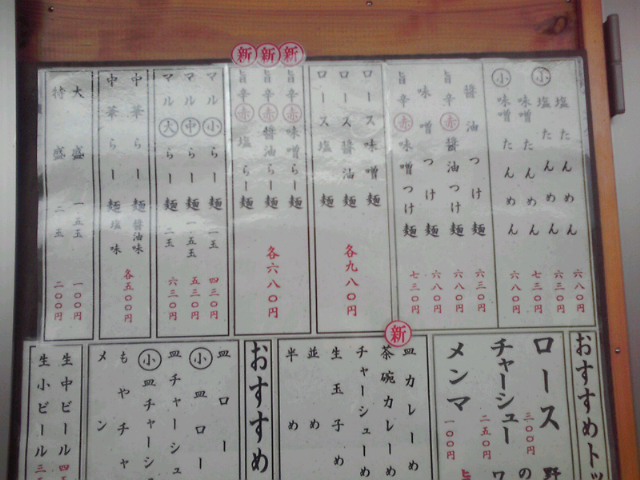 塩たんめん 六八〇円
小塩たんめん 五三〇円
味噌たんめん 七三〇円
小味噌たんめん 六八〇円
醤油つけ麺 六三〇円
旨辛赤醤油つけ麺 六八〇円
味噌つけ麺 六八〇円
旨辛赤味噌つけ麺 七三〇円
ロース味噌麺
ロース醤油麺
ロース塩麺
各九八〇円
新 旨辛赤味噌らー麺
新 旨辛赤醤油らー麺
新 旨辛赤塩らー麺
各六八〇円
マル小らー麺 一玉 四三〇円
マル中らー麺 一・五玉 五三〇円
マル大らー麺 二玉 六三〇円
中華らー麺 醤油味
中華らー麺 塩味
各五〇〇円
大盛 一・五玉 一〇〇円
特盛 二玉 二〇〇円
おすすめト
ロース 三〇〇円
チャーシュー 二五〇円
メンマ 一〇〇円
皿カレーめ
新 茶碗カレーめ
チャーシューめ
生玉子め
並め
半め
おすすめ
皿ロー
小皿ロー
皿チャーシ
小皿チャーシ
もやチャ
メン
生中ビール
生小ビール